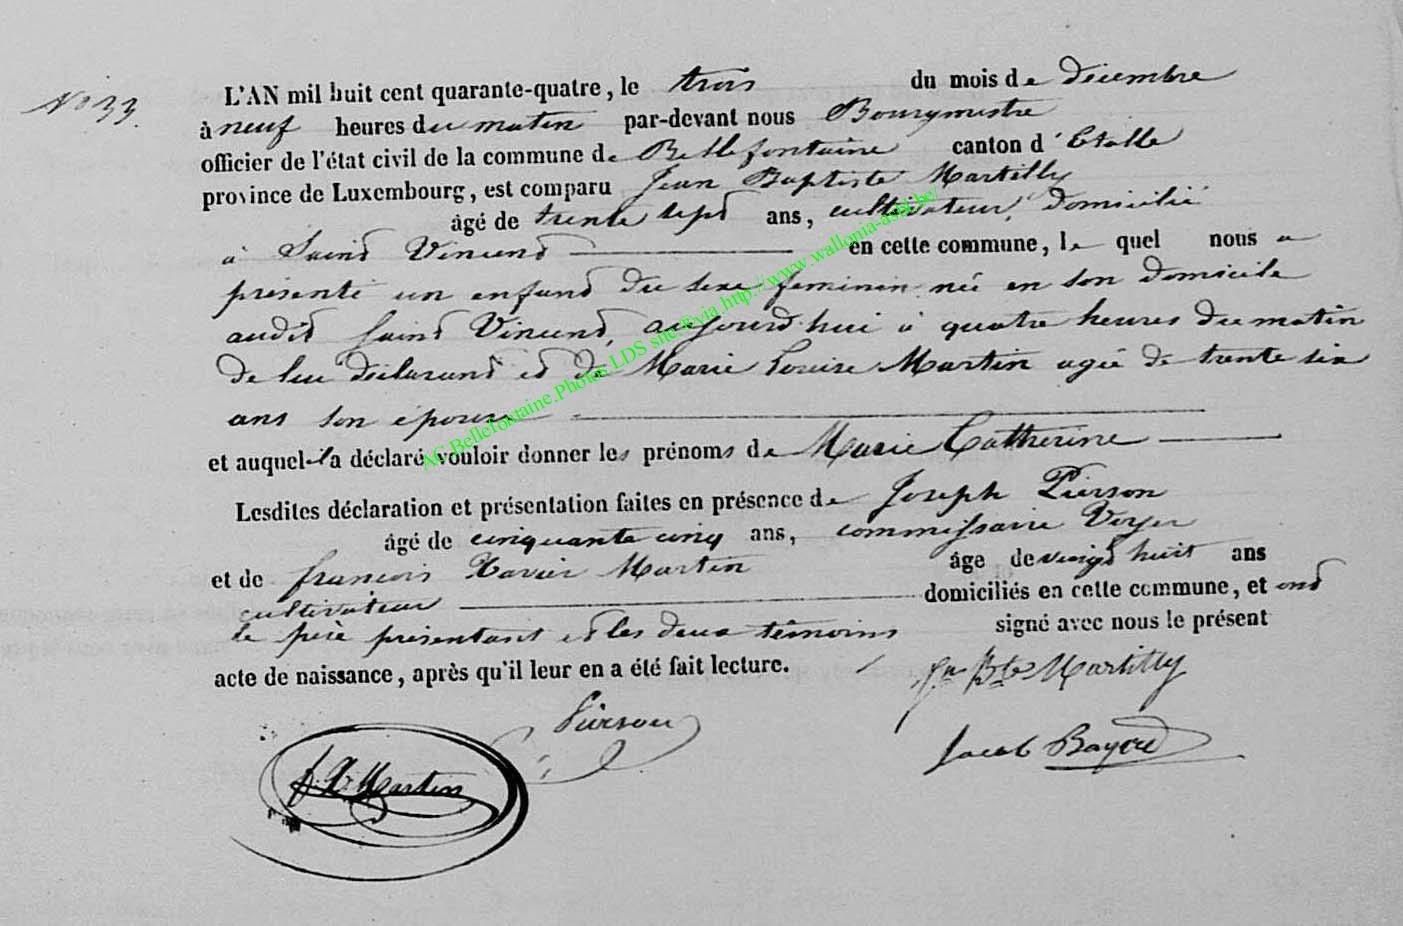 No 33.
L'AN mil huit cent quarante-quatre, le trois du mois de décembre
à neuf heures du matin par-devant nous Bourgmestre
officier de l'état civil de la commune de Bellefontaine canton d'Etalle
province de Luxembourg, est comparu Jean Baptiste Martilly
âgé de trente sept ans, cultivateur, domicilié
à Saint Vincent en cette commune, le quel nous a
présenté un enfant du sexe feminin né en son domicile
audit Saint Vincent, aujourd'hui à quatre heures du matin
de lui déclarant et de Marie Louise Martin agée de trente six
ans son épouse
et auquel il a déclaré vouloir donner les prénoms de Marie Catherine
Lesdites déclaration et présentation faites en présence de Joseph Pierson
âgé de cinquante cinq ans, commissaire Voyer
et de françois Xavier Martin âgé de vingt huit ans
cultivateur domiciliés en cette commune, et ont
le père présentant et les deux témoins signé avec nous le présent
acte de naissance, après qu'il leur en a été fait lecture.
Jn Bte Martilly
Pierson
Jacob Bayet
f X Martin
AC Bellefontaine.Photos LDS site.©via http://www.wallonia-asbl.be/